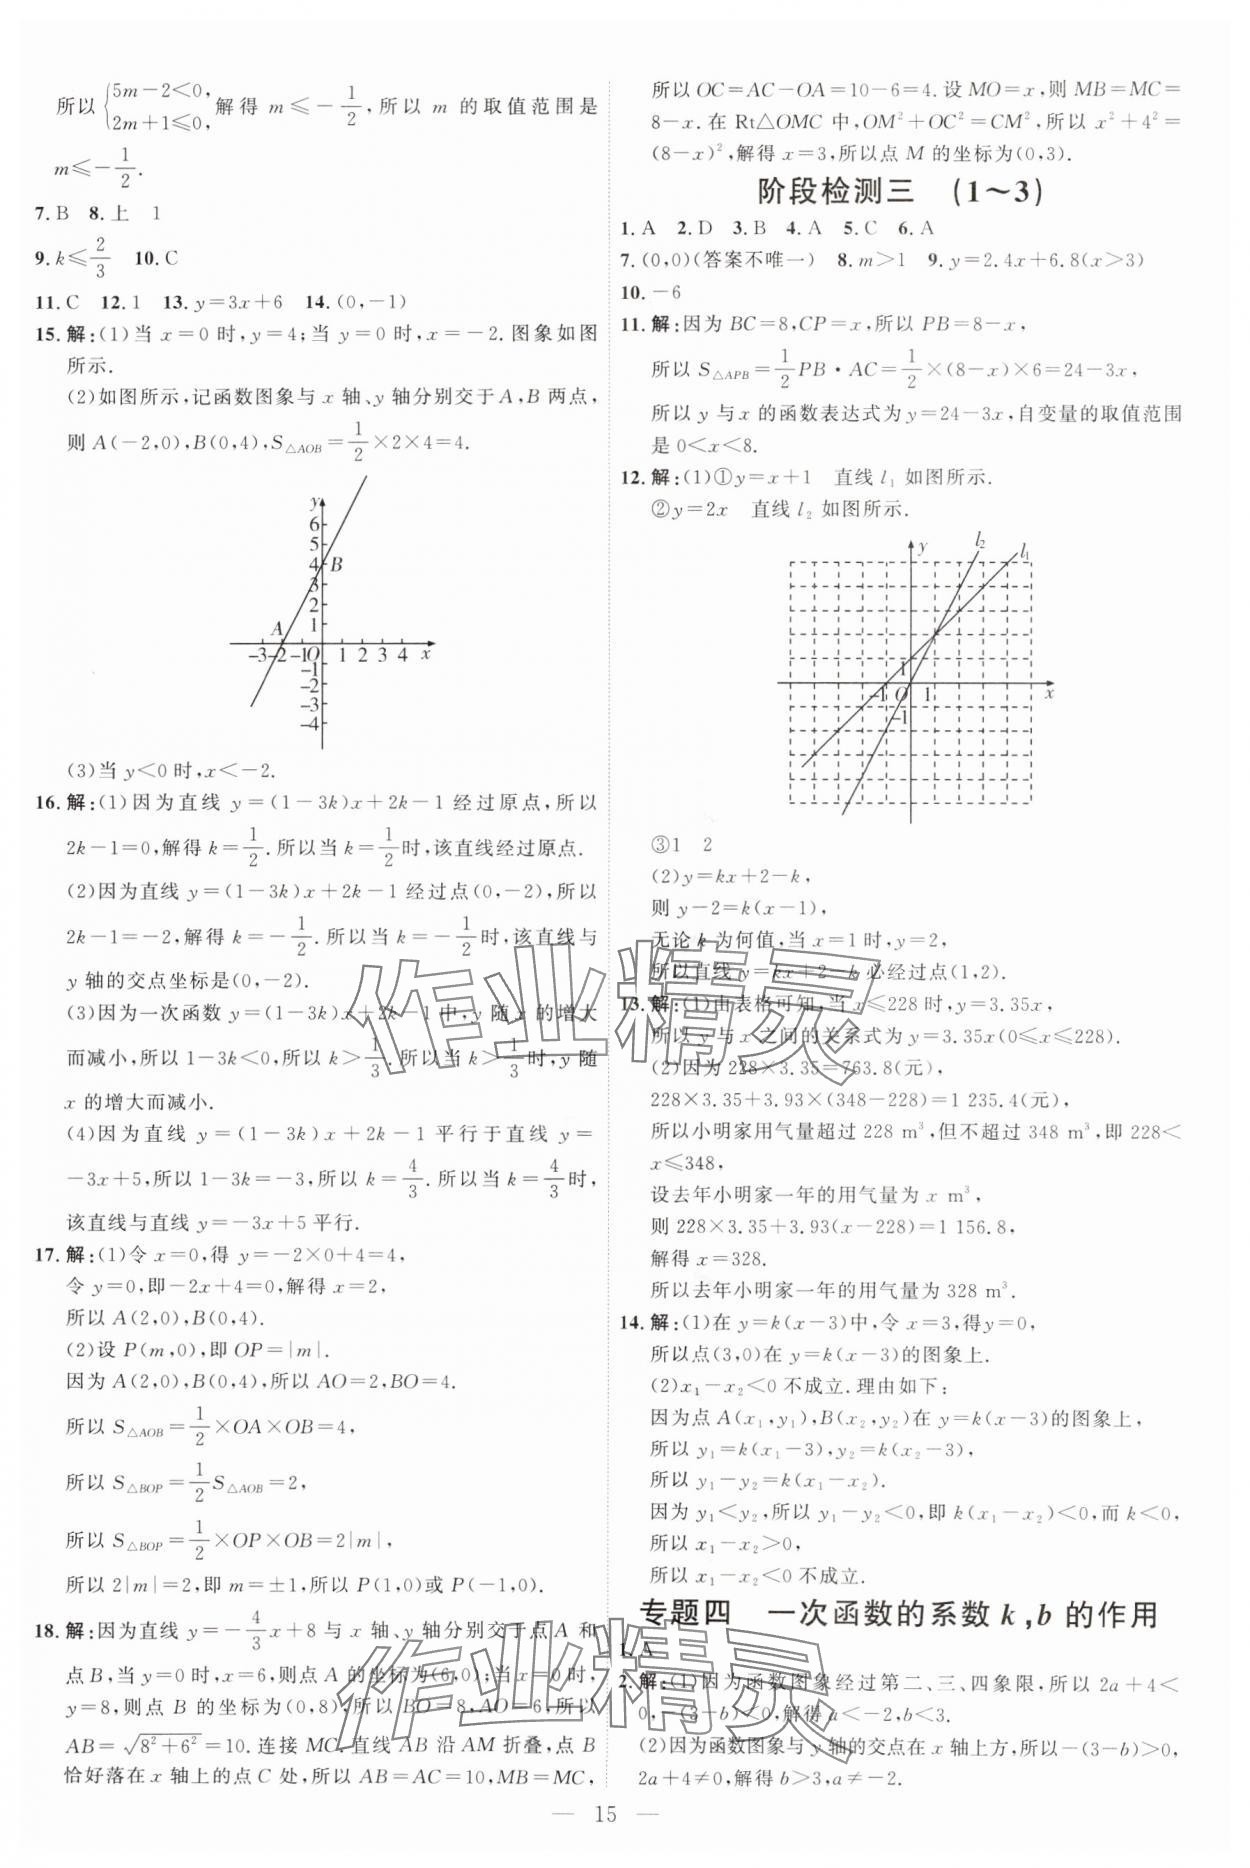 所以{5m－2＜0, 2m＋1≤0, 解得 m≤－1/2,所以 m 的取值范围是
m≤－1/2.
7.B 8.上 1
9.k≤2/3 10.C
11.C 12.1 13.y＝3x＋6 14.(0,－1)
15.解:(1)当 x＝0 时,y＝4;当 y＝0 时,x＝－2.图象如图
所示.
(2)如图所示,记函数图象与 x 轴、y 轴分别交于 A,B 两点,
则 A(－2,0),B(0,4),S△AOB＝1/2×2×4＝4.
y
6
5
4 B
3
2
1
A
－3－2－1O 1 2 3 4 x
－1
－2
－3
－4
(3)当 y＜0 时,x＜－2.
16.解:(1)因为直线 y＝(1－3k)x＋2k－1 经过原点,所以
2k－1＝0,解得 k＝1/2.所以当 k＝1/2时,该直线经过原点.
(2)因为直线 y＝(1－3k)x＋2k－1 经过点(0,－2),所以
2k－1＝－2,解得 k＝－1/2.所以当 k＝－1/2时,该直线与
y 轴的交点坐标是(0,－2).
(3)因为一次函数 y＝(1－3k)x＋2k－1 中,y 随 x 的增大
而减小,所以 1－3k＜0,所以 k＞1/3.所以当 k＞1/3时,y 随
x 的增大而减小.
(4)因为直线 y＝(1－3k)x＋2k－1 平行于直线 y＝
－3x＋5,所以 1－3k＝－3,所以 k＝4/3.所以当 k＝4/3时,
该直线与直线 y＝－3x＋5 平行.
17.解:(1)令 x＝0,得 y＝－2×0＋4＝4,
令 y＝0,即－2x＋4＝0,解得 x＝2,
所以 A(2,0),B(0,4).
(2)设 P(m,0),即 OP＝|m|.
因为 A(2,0),B(0,4),所以 AO＝2,BO＝4.
所以 S△AOB＝1/2×OA×OB＝4,
所以 S△BOP＝1/2S△AOB＝2,
所以 S△BOP＝1/2×OP×OB＝2|m|,
所以 2|m|＝2,即 m＝±1,所以 P(1,0)或 P(－1,0).
18.解:因为直线 y＝－4/3x＋8 与 x 轴、y 轴分别交于点 A 和
点 B,当 y＝0 时,x＝6,则点 A 的坐标为(6,0);当 x＝0 时,
y＝8,则点 B 的坐标为(0,8),所以 BO＝8,AO＝6,所以
AB＝√8²＋6²＝10.连接 MC.直线 AB 沿 AM 折叠,点 B
恰好落在 x 轴上的点 C 处,所以 AB＝AC＝10,MB＝MC,
所以 OC＝AC－OA＝10－6＝4.设 MO＝x,则 MB＝MC＝
8－x.在 Rt△OMC 中,OM²＋OC²＝CM²,所以 x²＋4²＝
(8－x)²,解得 x＝3,所以点 M 的坐标为(0,3).
阶段检测三 (1～3)
1.A 2.D 3.B 4.A 5.C 6.A
7.(0,0)(答案不唯一) 8.m＞1 9.y＝2.4x＋6.8(x＞3)
10.－6
11.解:因为 BC＝8,CP＝x,所以 PB＝8－x,
所以 S△APB＝1/2PB·AC＝1/2×(8－x)×6＝24－3x,
所以 y 与 x 的函数表达式为 y＝24－3x,自变量的取值范围
是 0＜x＜8.
12.解:(1)①y＝x＋1 直线 l₁ 如图所示.
②y＝2x 直线 l₂ 如图所示.
y l₂ l₁
1
－1 O 1 x
－1
③1 2
(2)y＝kx＋2－k,
则 y－2＝k(x－1),
无论 k 为何值,当 x＝1 时,y＝2,
所以直线 y＝kx＋2－k 必经过点(1,2).
13.解:(1)由表格可知,当 x≤228 时,y＝3.35x,
所以 y 与 x 之间的关系式为 y＝3.35x(0≤x≤228).
(2)因为 228×3.35＝763.8(元),
228×3.35＋3.93×(348－228)＝1 235.4(元),
所以小明家用气量超过 228 m³,但不超过 348 m³,即 228＜
x≤348,
设去年小明家一年的用气量为 x m³,
则 228×3.35＋3.93(x－228)＝1 156.8,
解得 x＝328.
所以去年小明家一年的用气量为 328 m³.
14.解:(1)在 y＝k(x－3)中,令 x＝3,得y＝0,
所以点(3,0)在 y＝k(x－3)的图象上.
(2)x₁－x₂＜0 不成立.理由如下:
因为点 A(x₁,y₁),B(x₂,y₂)在 y＝k(x－3)的图象上,
所以 y₁＝k(x₁－3),y₂＝k(x₂－3),
所以 y₁－y₂＝k(x₁－x₂).
因为 y₁＜y₂,所以 y₁－y₂＜0,即 k(x₁－x₂)＜0,而 k＜0,
所以 x₁－x₂＞0,
所以 x₁－x₂＜0 不成立.
专题四 一次函数的系数 k,b 的作用
1.A
2.解:(1)因为函数图象经过第二、三、四象限,所以 2a＋4＜
0,－(3－b)＜0,解得 a＜－2,b＜3.
(2)因为函数图象与 y轴的交点在 x 轴上方,所以－(3－b)＞0,
2a＋4≠0,解得 b＞3,a≠－2.
— 15 —
作业精灵
作业精灵